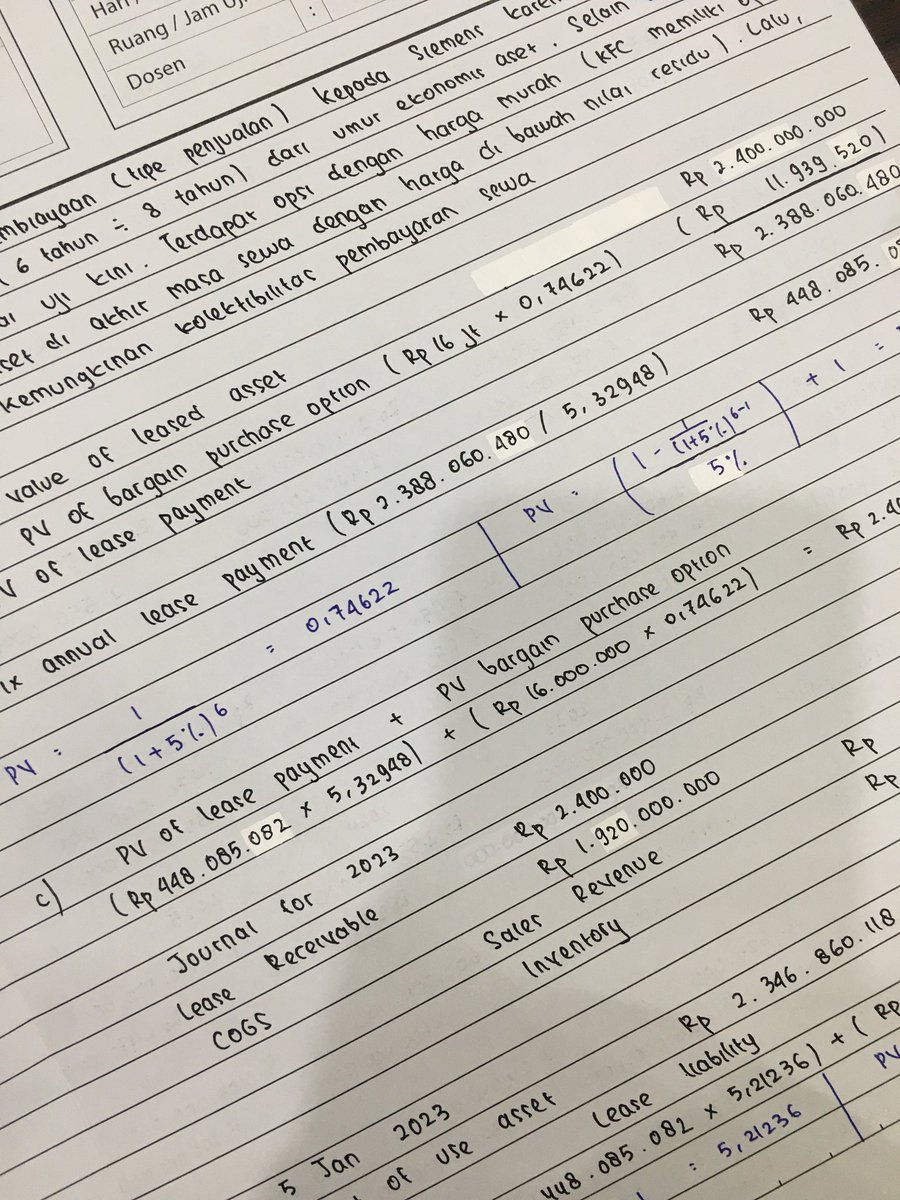 Hari /
Ruang / Jam Uji :
Dosen
mbiayaan (tipe penjualan) kepada Siemens karen
( 6 tahun ÷ 8 tahun) dari umur ekonomis aset. Selain
ai uji kini. Terdapat opsi dengan harga murah (KFC memiliki op
set di akhir masa sewa dengan harga di bawah nilai residu). Lalu,
kemungkinan kolektibilitas pembayaran sewa
value of leased asset Rp 2.400.000.000
PV of bargain purchase option (Rp 16 jt x 0,74622) (Rp 11.939.520)
V of lease payment Rp 2.388.060.480
ix annual lease payment (Rp 2.388.060.480 / 5,32948) Rp 448.085.0
PV = 1 / (1+5%)^6 = 0,74622
PV = ( (1 - 1/(1+5%)^6-1) / 5% ) + 1 =
c) PV of lease payment + PV bargain purchase option
(Rp 448.085.082 x 5,32948) + (Rp 16.000.000 x 0,74622) = Rp 2.40
Journal for 2023
Lease Receivable Rp 2.400.000
COGS Rp 1.920.000.000
Sales Revenue Rp
Inventory Rp
5 Jan 2023
of use asset Rp 2.346.860.118
Lease liability
448.085.082 x 5,21236) + (Rp
= 5,21236
PV